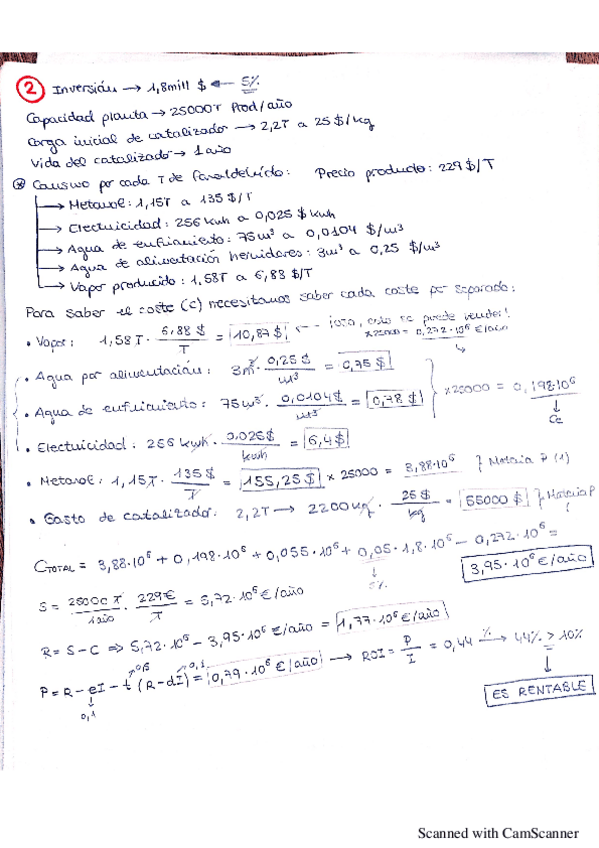 ② Inversión → 1,8 mill $ ← 5%
Capacidad planta → 25000 T Prod/año
Carga inicial de catalizador → 2,2T a 25 $/kg
Vida del catalizador → 1 año
Consumo por cada T de formaldehído: Precio producto: 229 $/T
→ Metanol: 1,15T a 135 $/T
→ Electricidad: 256 kwh a 0,025 $ kwh
→ Agua de enfriamiento: 75 m³ a 0,0104 $/m³
→ Agua de alimentación hervidores: 3m³ a 0,25 $/m³
→ Vapor producido: 1,58T a 6,88 $/T
Para saber el coste (C) necesitamos saber cada coste por separado:
• Vapor: 1,58 T · 6,88 $ / T = 10,87 $ ← esto se puede vender!
x25000 = 0,272·10⁶ €/año
• Agua por alimentación: 3m³ · 0,25 $ / m³ = 0,75 $
• Agua de enfriamiento: 75 m³ · 0,0104 $ / m³ = 0,78 $ } x 25000 = 0,198·10⁶
• Electricidad: 256 kwh · 0,025 $ / kwh = 6,4 $
• Metanol: 1,15 T · 135 $ / T = 155,25 $ x 25000 = 3,88·10⁶ } Materia P (1)
• Gasto de catalizador: 2,2T → 2200 kg · 25 $ / kg = 55000 $ } Materia P
C_TOTAL = 3,88·10⁶ + 0,198·10⁶ + 0,055·10⁶ + 0,05·1,8·10⁶ − 0,272·10⁶ =
5%
3,95·10⁶ €/año
S = 25000 T / 1 año · 229 € / T = 5,72·10⁶ €/año
R = S − C ⇒ 5,72·10⁶ − 3,95·10⁶ €/año = 1,77·10⁶ €/año
P = R − eI − t (R − dI) = 0,79·10⁶ €/año → ROI = P / I = 0,44 % → 44% > 10%
0,1
0,1
ES RENTABLE
Scanned with CamScanner